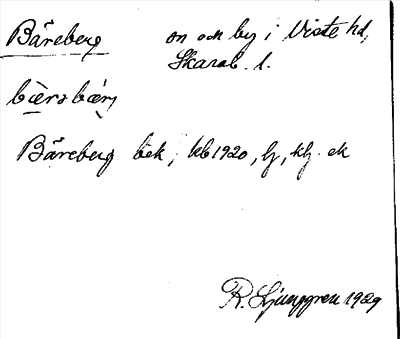 Bäreberg sn och by i Viste hd,
Skarab. l.
bæ̀rəbær̀j
Bäreberg bek, kb 1920, lj, klj. ek
R. Ljunggren 1929